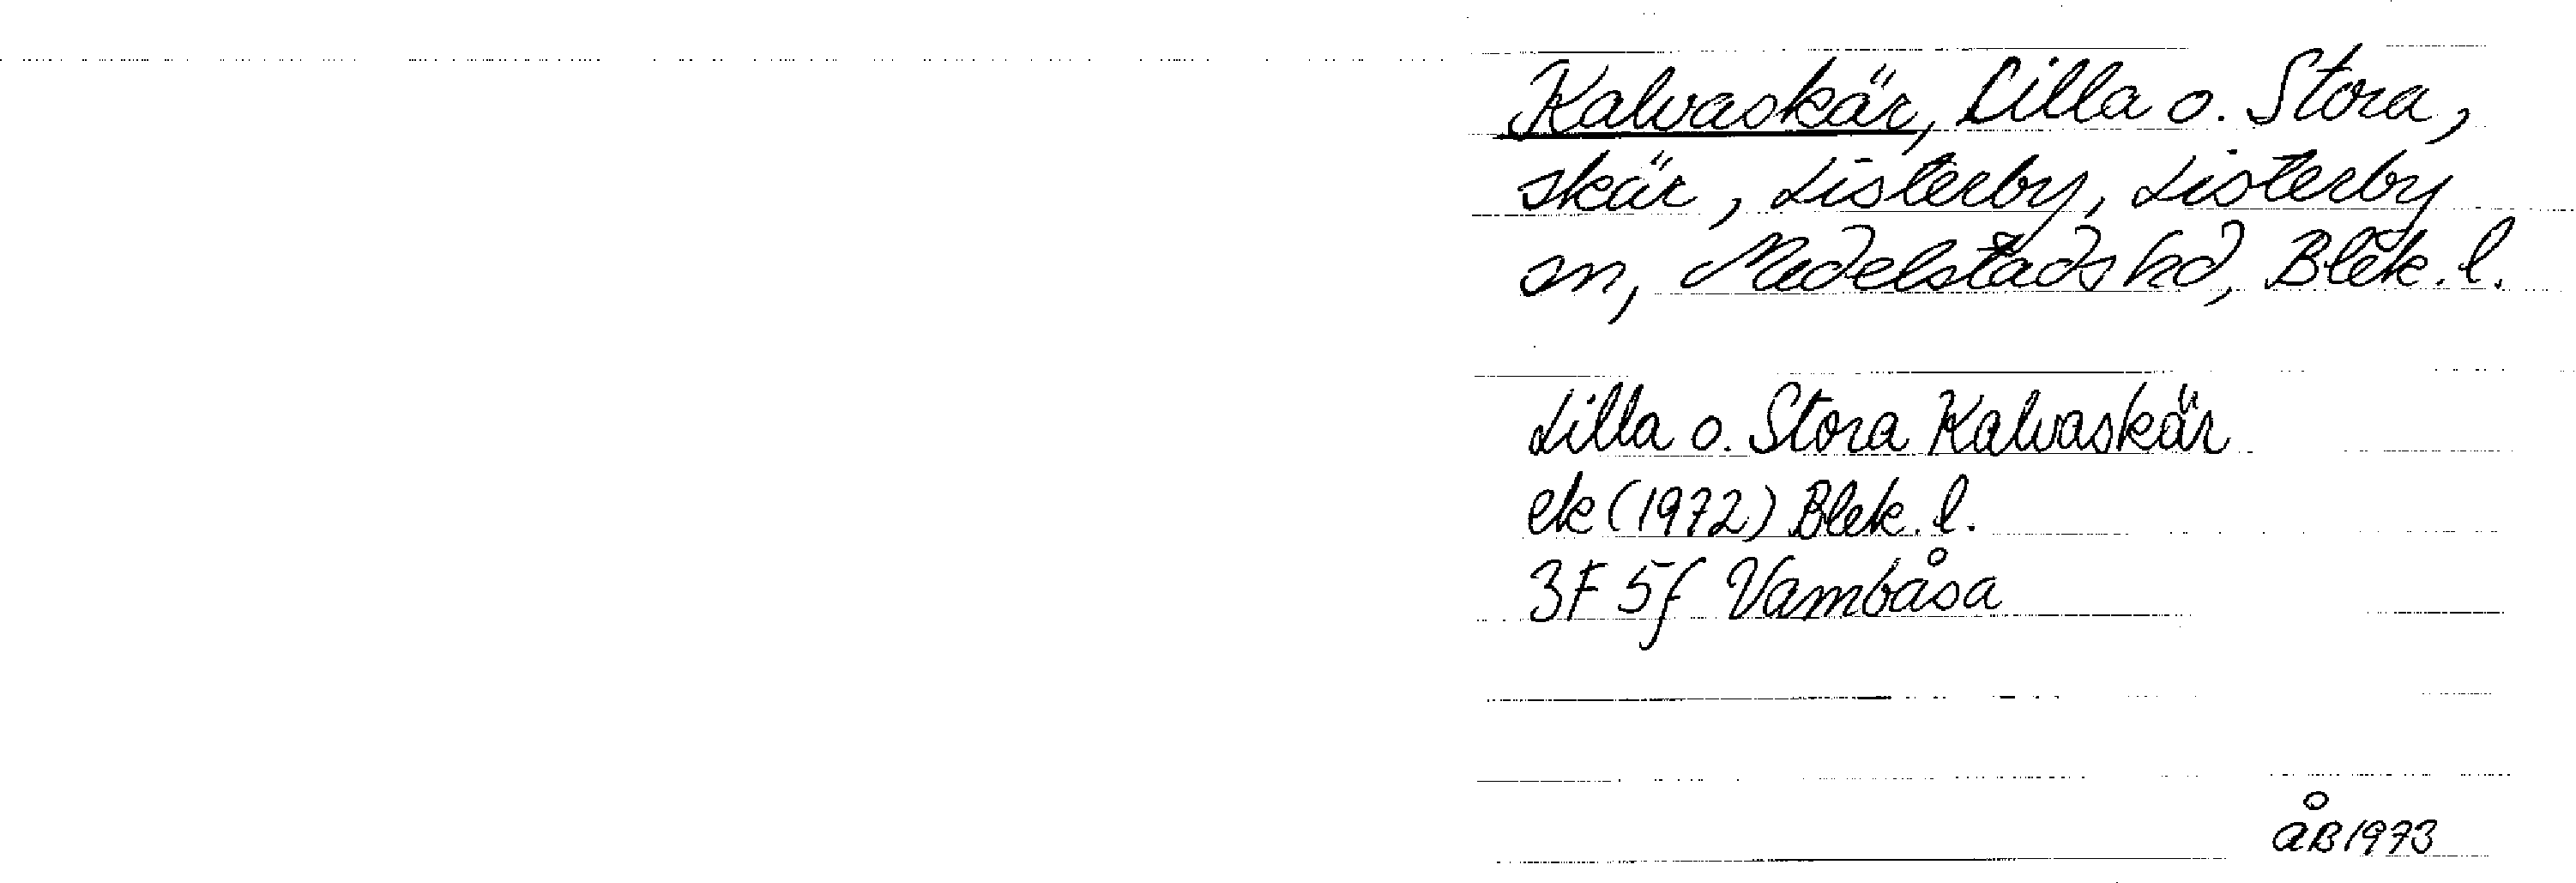 Kalvaskär, Lilla o. Stora,
skär, Listerby, Listerby
sn, Medelstads hd, Blek. l.
Lilla o. Stora Kalvaskär
ek (1972) Blek. l.
3F 5f Vambåsa
ÅB 1973